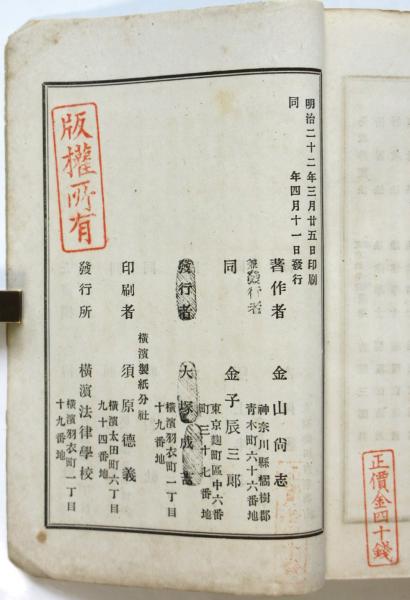 明治二十二年三月廿五日印刷
同　　　年四月十一日發行
著作者　金山尚志
神奈川縣橘樹郡
青木町六十六番地
兼發行者
同　金子辰三郎
東京麹町區中六番
町三十七番地
發行者　大塚成
橫濱羽衣町一丁目
十九番地
橫濱製紙分社
印刷者　須原德義
橫濱太田町六丁目
九十四番地
發行所　橫濱法律學校
橫濱羽衣町一丁目
十九番地
版權所有
正價金四十錢